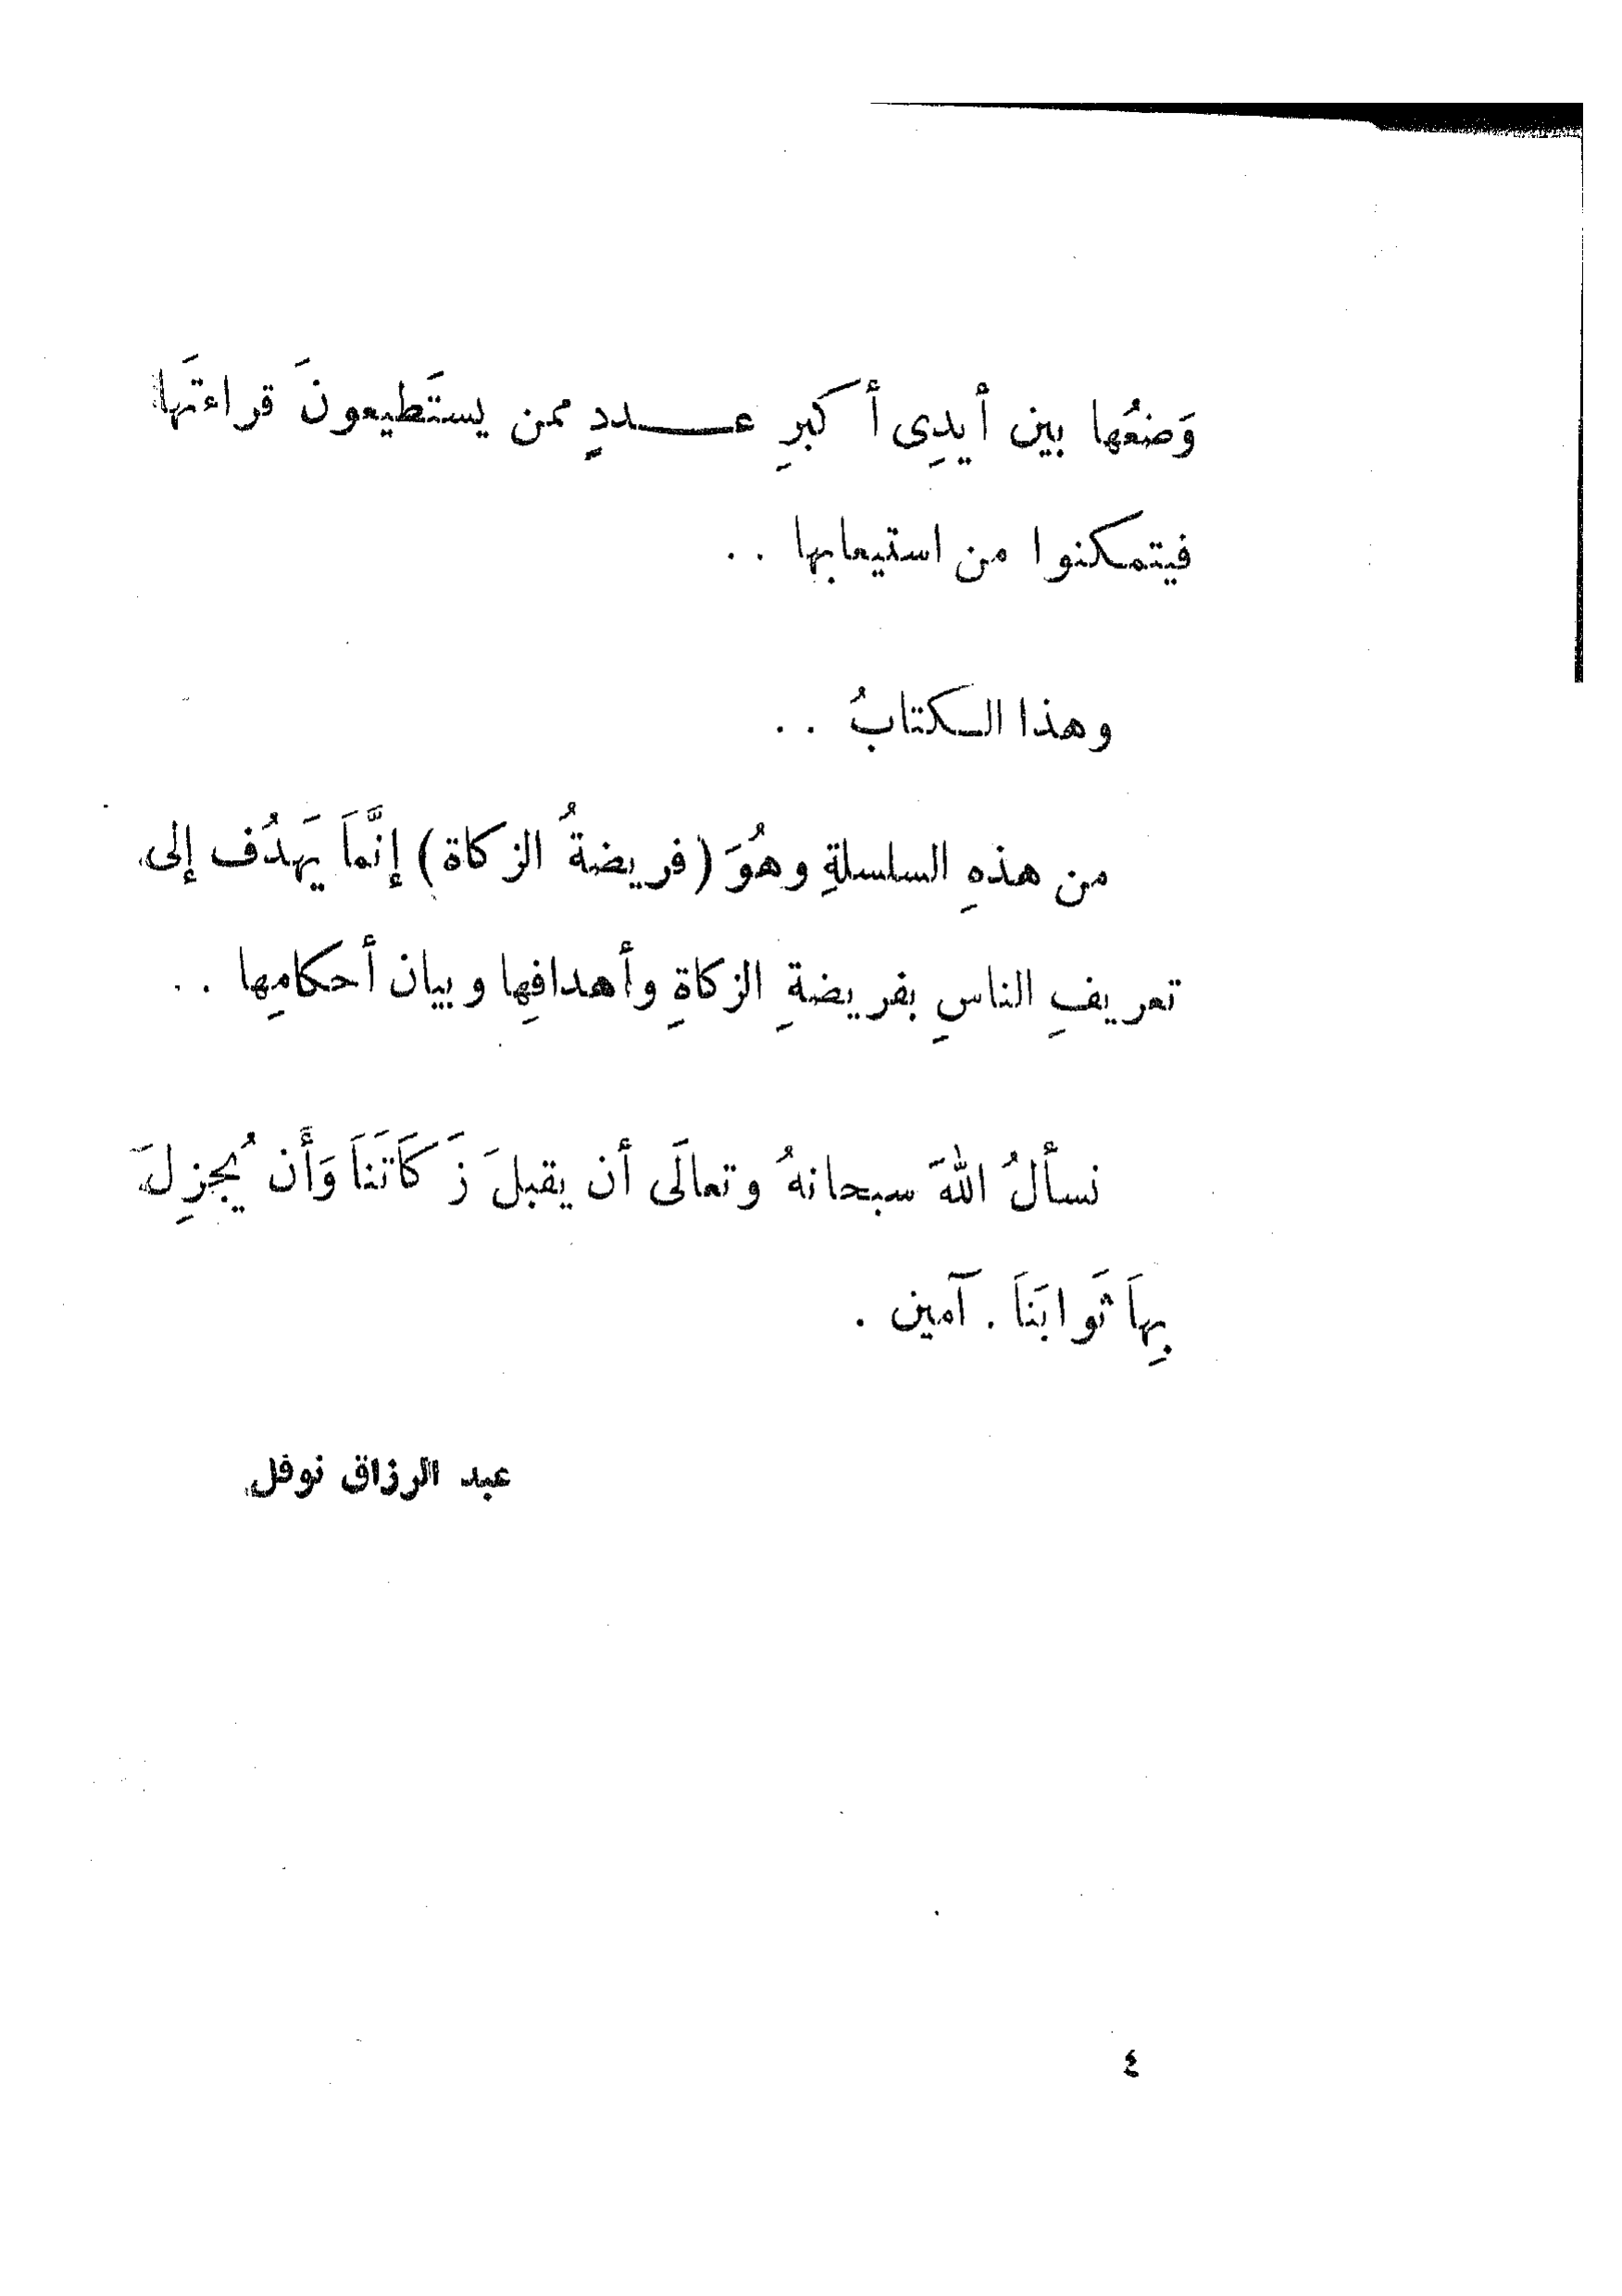 وَضعُها بين أيدِى أكبرِ عـــددٍ ممن يستَطيعونَ قراءتَها
فيتمكنوا من استيعابها ..
وهذا الكتابُ ..
من هذهِ السلسلةِ وهُوَ (فريضةُ الزكاة) إنَّماَ يَهدُف إلى
تعريفِ الناسِ بفريضةِ الزكاةِ وأهدافِها وبيان أحكامِها ..
نسألُ اللهَ سبحانهُ وتعالَى أن يقبلَ زَكَاتَناَ وَأَن يُجزِلَ
بِهاَ ثَوابَناَ . آمين .
عبد الرزاق نوفل
٤